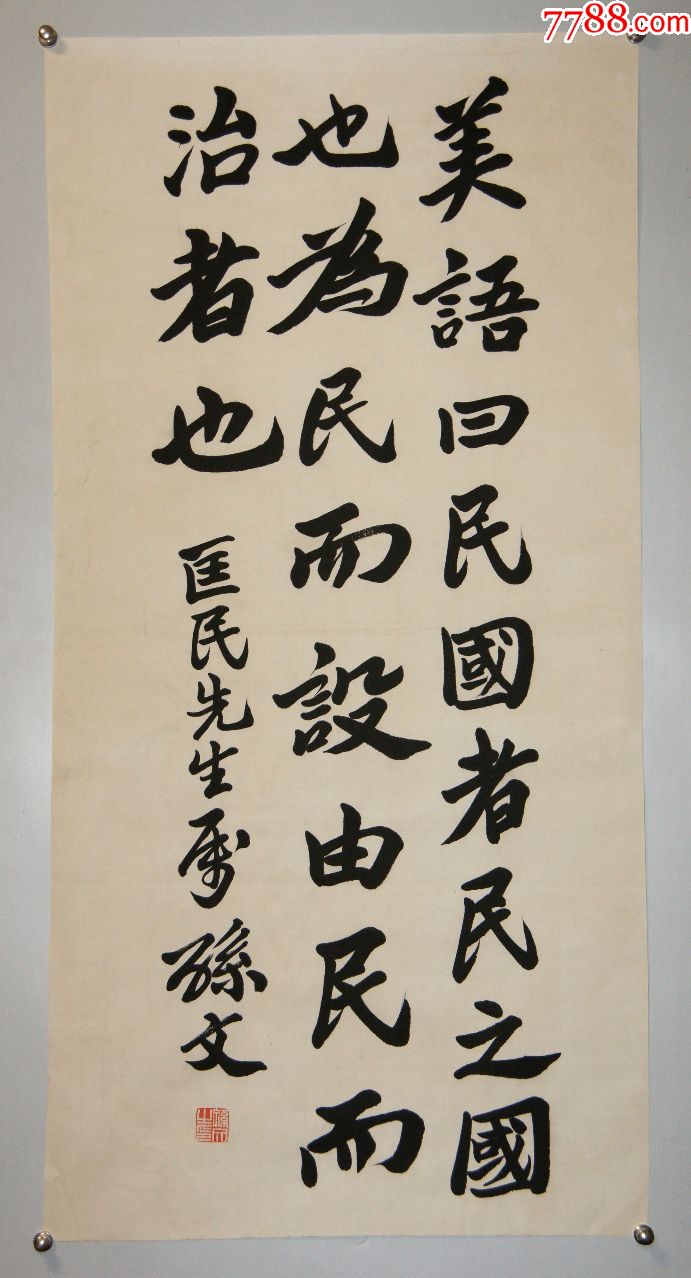 7788.com
美語曰民國者民之國
也為民而設由民而
治者也
匡民先生属 孫文
孫文之印